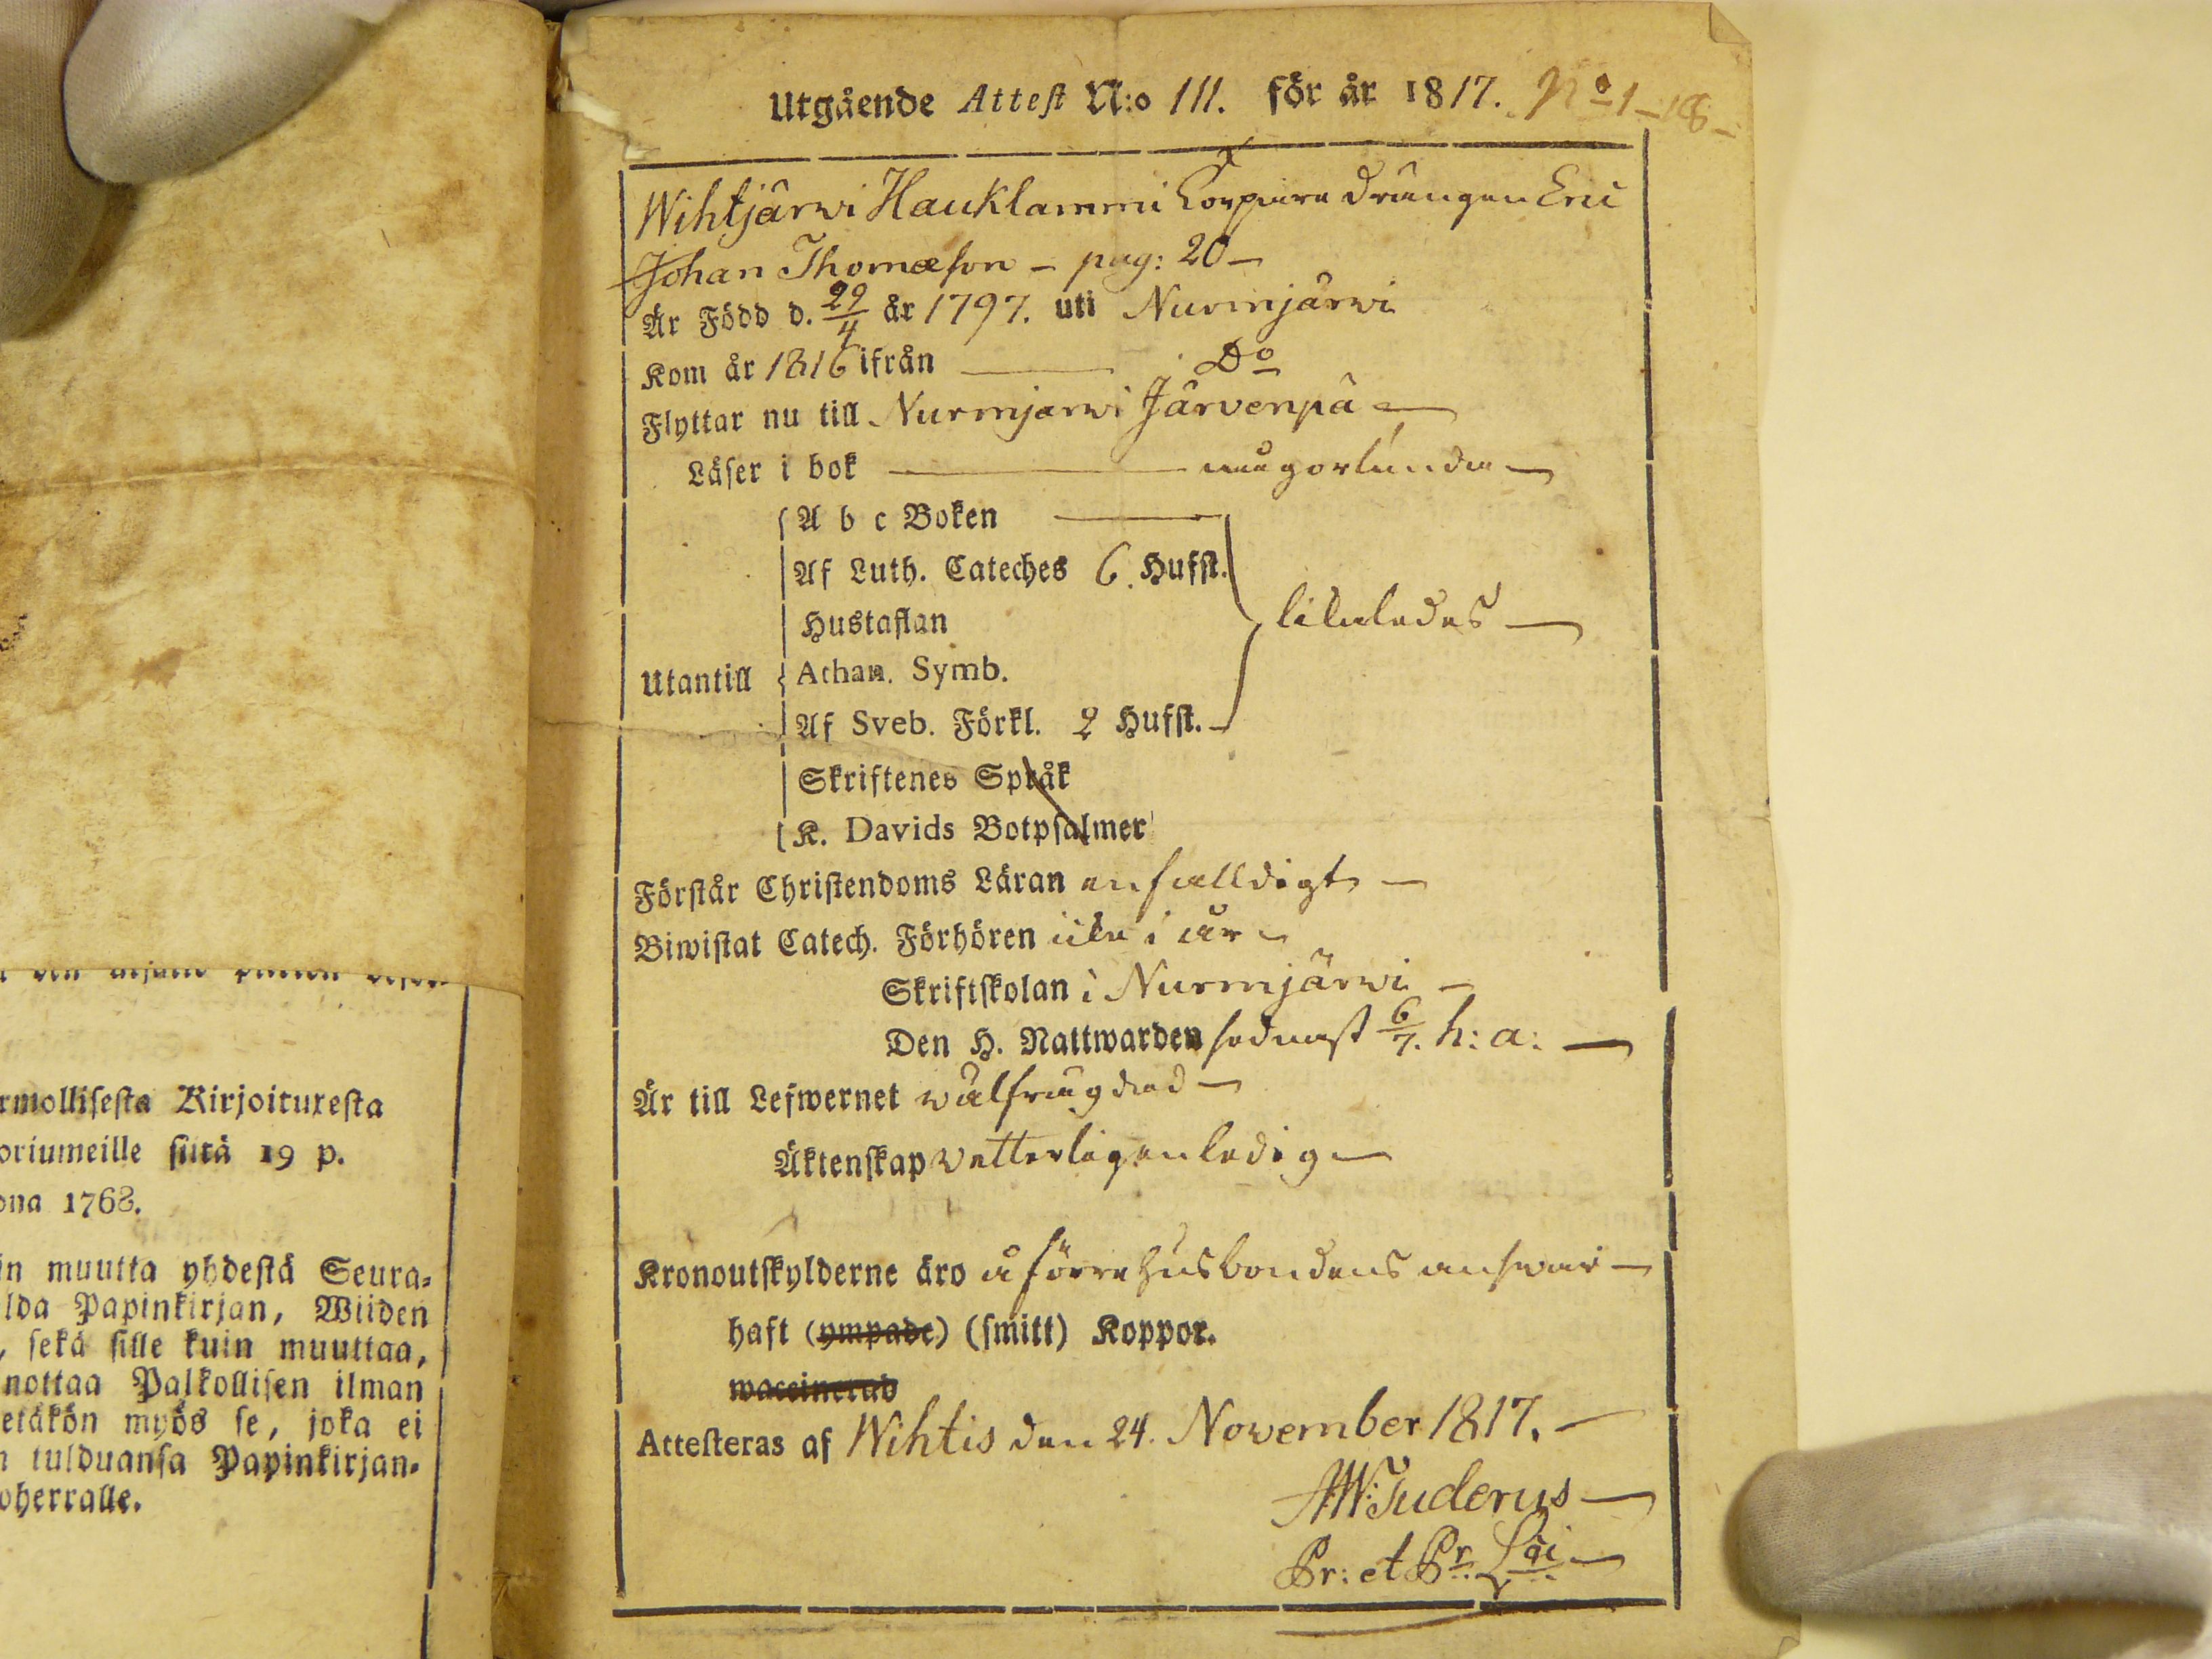 Utgående Attest N:o 111. för år 1817. No 1 - 18 -
Wihtjärwi Hauklammi Torpare drängen Eric
Johan Thomæson - pag: 20 -
Är Född d. 29/4 år 1797. uti Nurmjärwi
Kom år 1816 ifrån Do
Flyttar nu till Nurmjarwi Järvenpä
Läser i bok någorlunda
A b c Boken
Af Luth. Cateches 6. Hufst.
Hustaflan
likaledes
Utantill
Athan. Symb.
Af Sveb. Förkl. 2 Hufst.
Skriftenes Språk
K. Davids Botpsalmer
Förstår Christendoms Läran enfalldigt
Biwistat Catech. Förhören icke i år
Skriftskolan i Nurmjärwi
Den H. Nattwarden sednast 6/7. h: a:
Är till Lefwernet wälfrägdad
Äktenskap vetterligen ledig
Kronoutskylderne äro å förre Husbondens answar
haft (ympade) (smitt) Koppor.
waccinerad
Attesteras af Wihtis den 24. November 1817.
AW: Tuderus
Pr: et Pr. Lci
rmollisesta Kirjoituxesta
oriumeille siitä 19 p.
ona 1768.
in muutta yhdestä Seura-
lda Papinkirjan, Wiiden
, sekä sille kuin muuttaa,
nottaa Palkollisen ilman
etäkön myös se, joka ei
n tulduansa Papinkirjan-
oherralle.